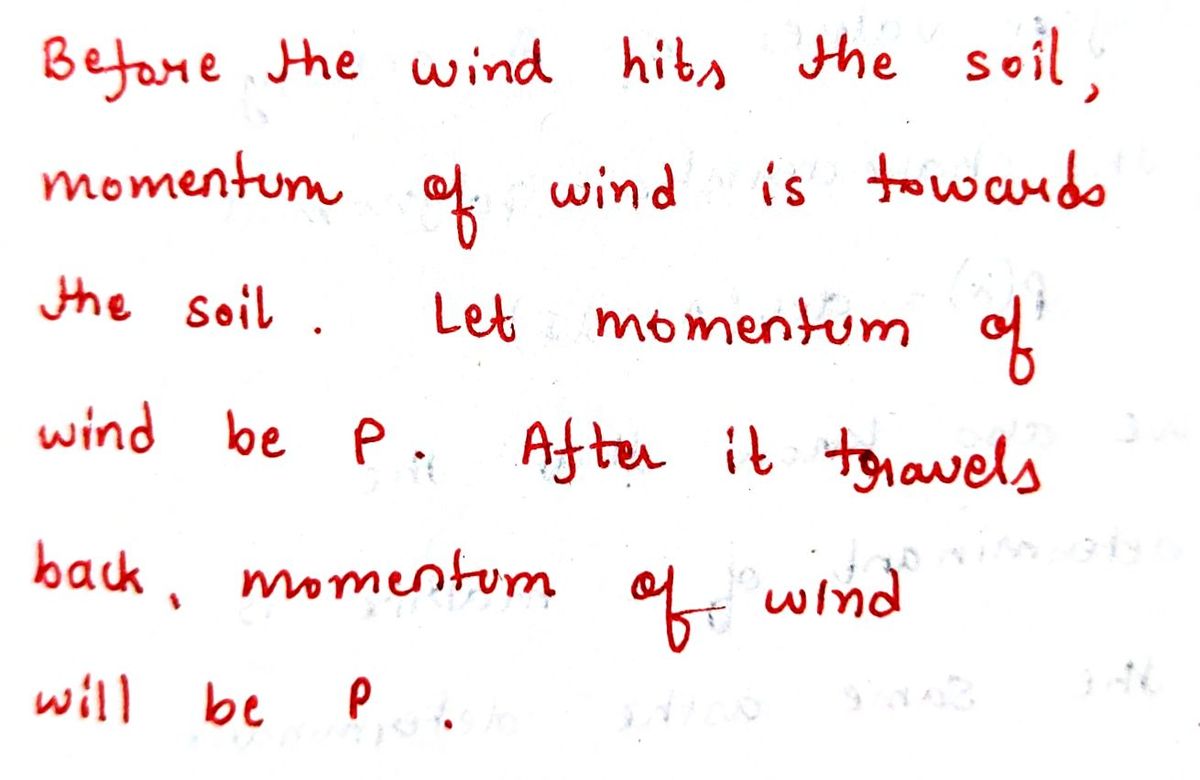 Before the wind hits the soil,
momentum of wind is towards
the soil. Let momentum of
wind be P. After it travels
back, momentum of wind
will be P.